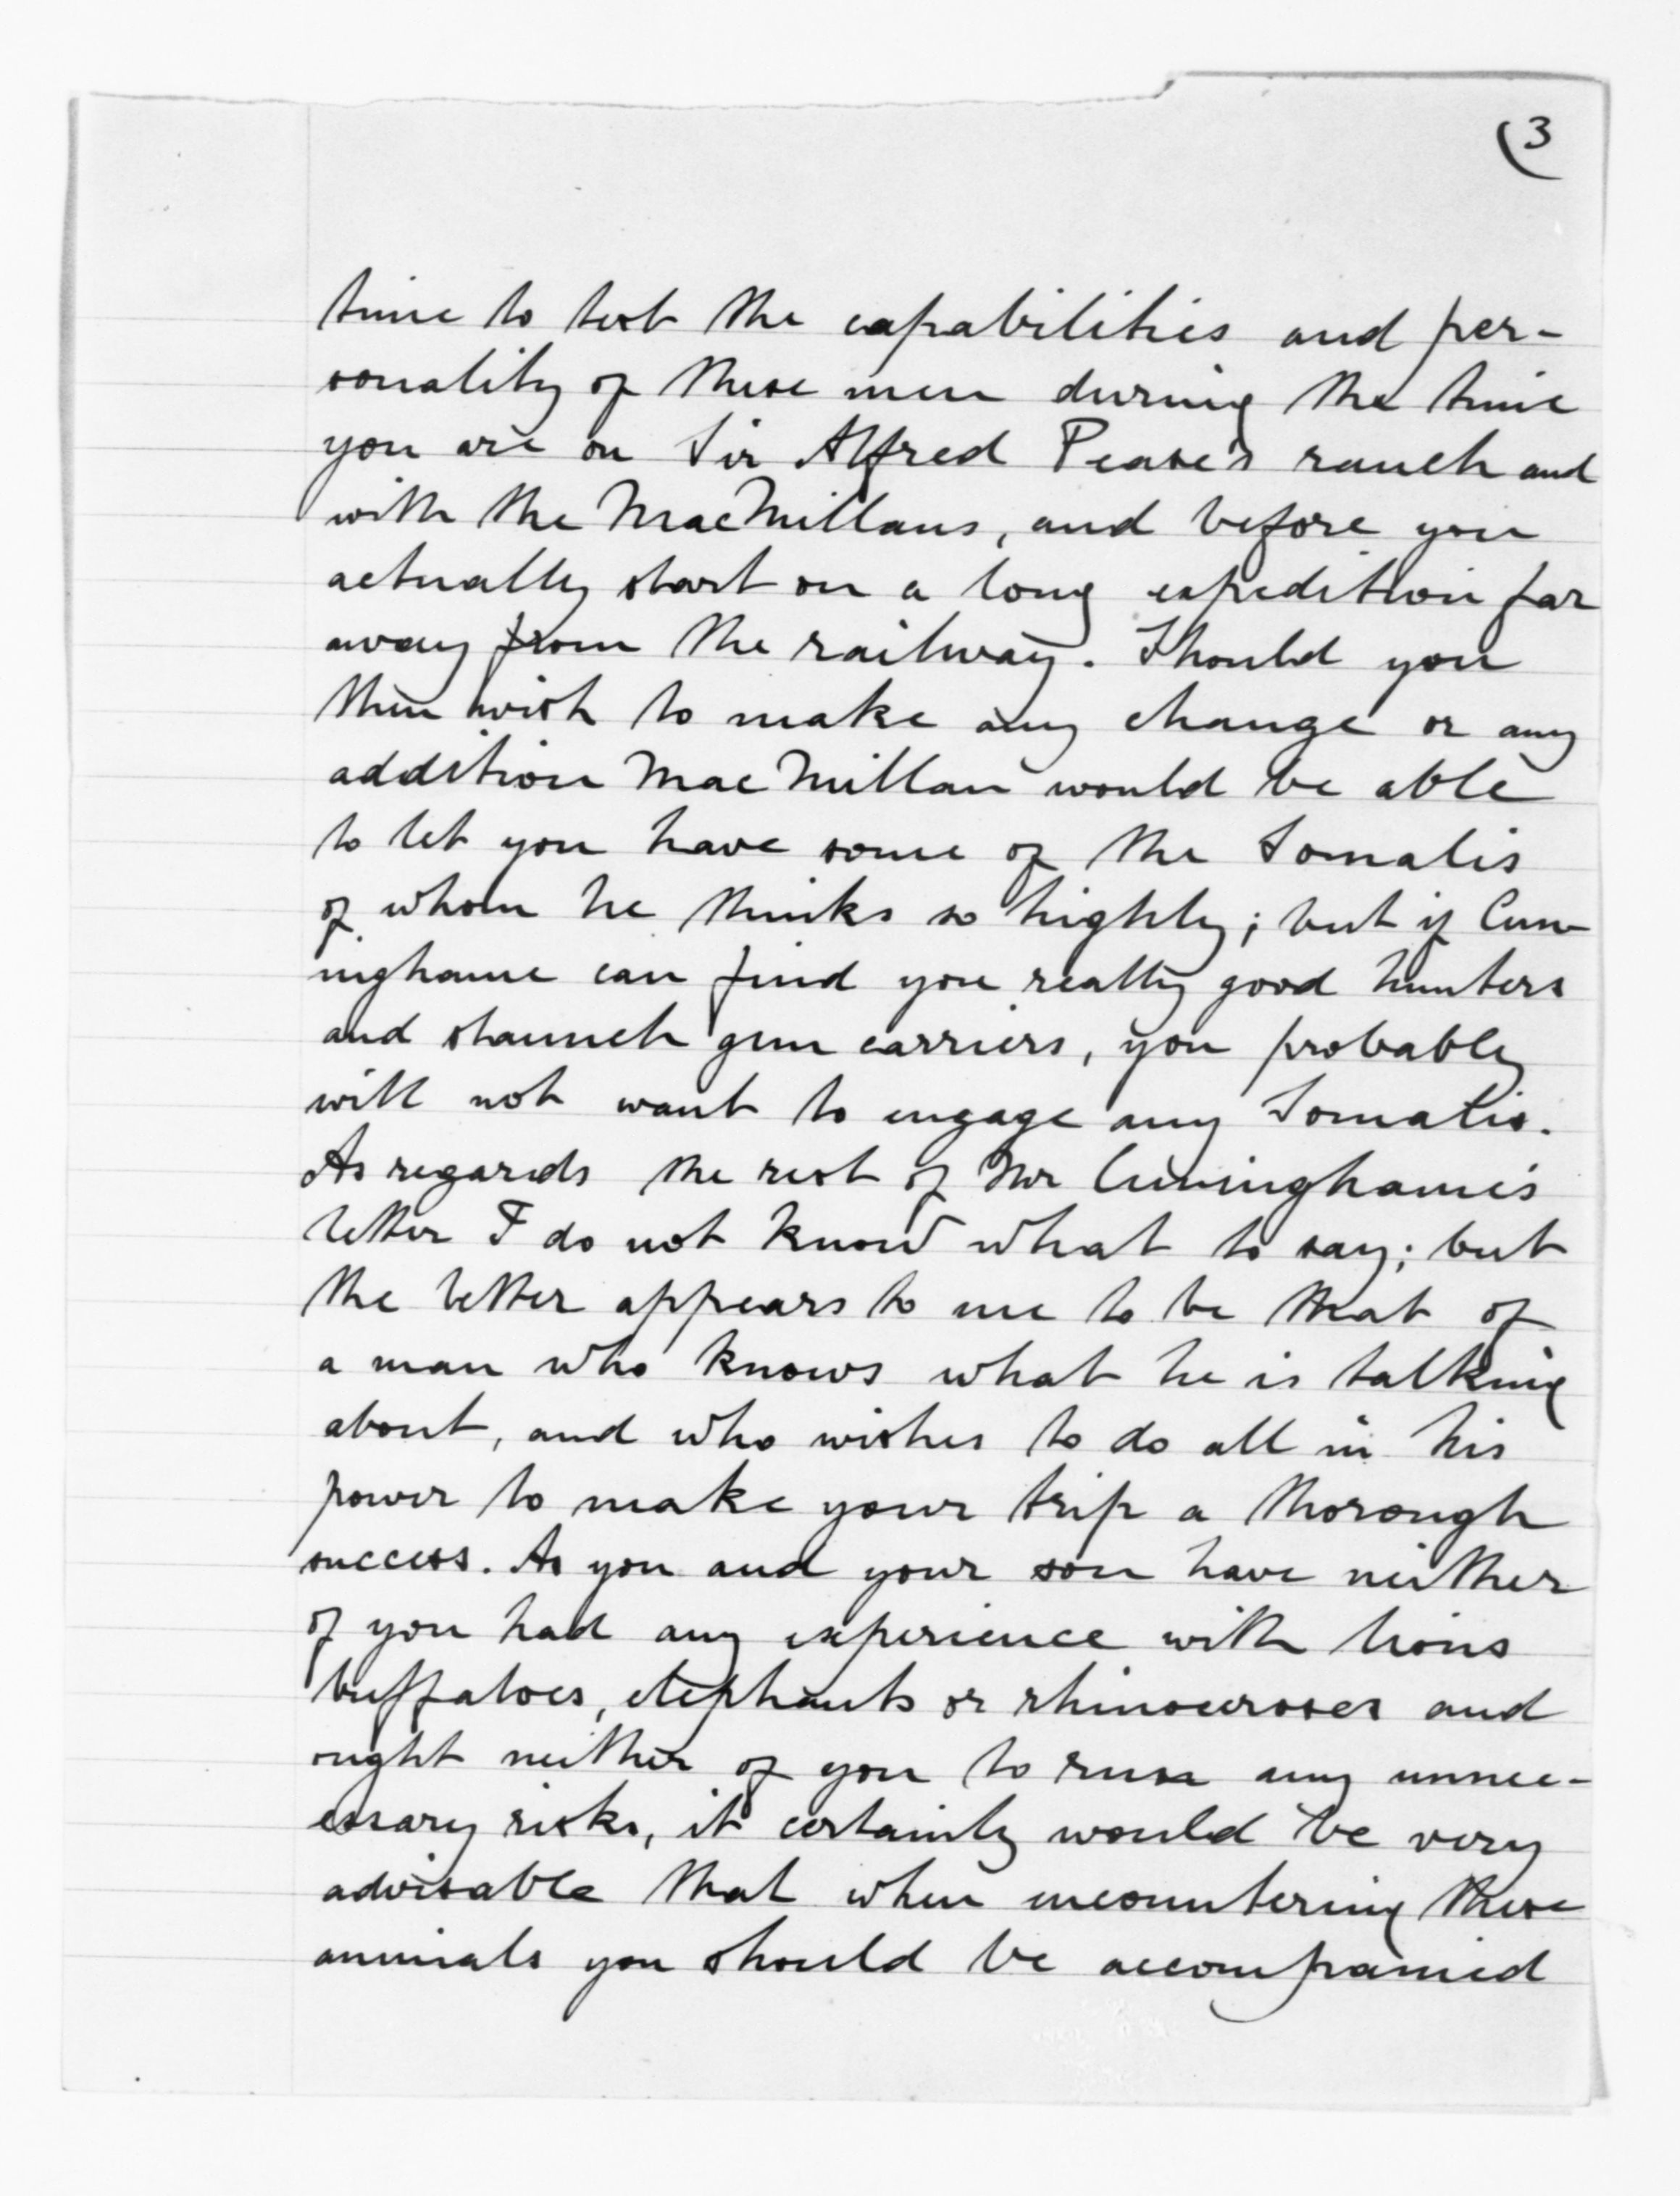 (3
time to test the capabilities and per-
sonality of these men during the time
you are on Sir Alfred Pease's ranch and
with the MacMillans, and before you
actually start on a long expedition far
away from the railway. Should you
then wish to make any change or any
addition MacMillan would be able
to let you have some of the Somalis
of whom he thinks so highly; but if Cun-
inghame can find you really good hunters
and staunch gun carriers, you probably
will not want to engage any Somalis.
As regards the rest of Mr Cuninghame's
letter I do not know what to say; but
the letter appears to me to be that of
a man who knows what he is talking
about, and who wishes to do all in his
power to make your trip a thorough
success. As you and your son have neither
of you had any experience with lions
buffaloes, elephants or rhinoceroses and
ought neither of you to run any unnec-
essary risks, it certainly would be very
advisable that when encountering these
animals you should be accompanied